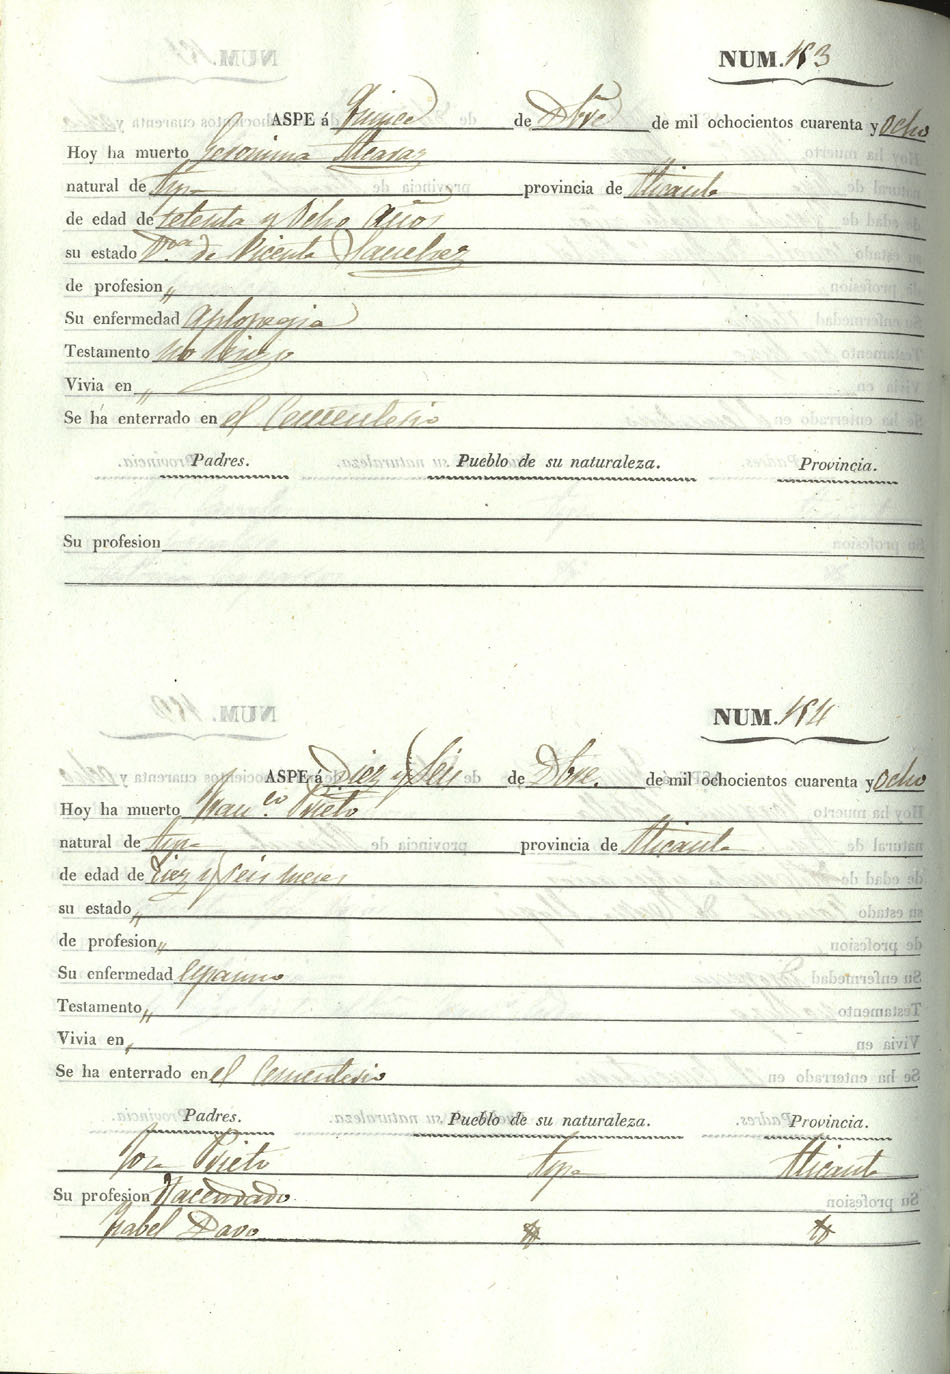 NUM. 183
ASPE á Quince de Dbre de mil ochocientos cuarenta y ocho
Hoy ha muerto Geronima Alcaraz
natural de Aspe provincia de Alicante
de edad de setenta y ocho años
su estado Vda de Vicente Sanchez
de profesion „
Su enfermedad aplopegia
Testamento no hizo
Vivia en „
Se há enterrado en el Cementerio
Padres. Pueblo de su naturaleza. Provincia.
Su profesion
NUM. 184
ASPE á Diez y Seis de Dbre. de mil ochocientos cuarenta y ocho
Hoy ha muerto Franco. Prieto
natural de Aspe provincia de Alicante
de edad de Diez y seis meses
su estado „
de profesion „
Su enfermedad espasmo
Testamento „
Vivia en „
Se ha enterrado en el Cementerio
Padres. Pueblo de su naturaleza. Provincia.
Prieto Aspe Alicante
Su profesion Hacendado
Isabel Davo